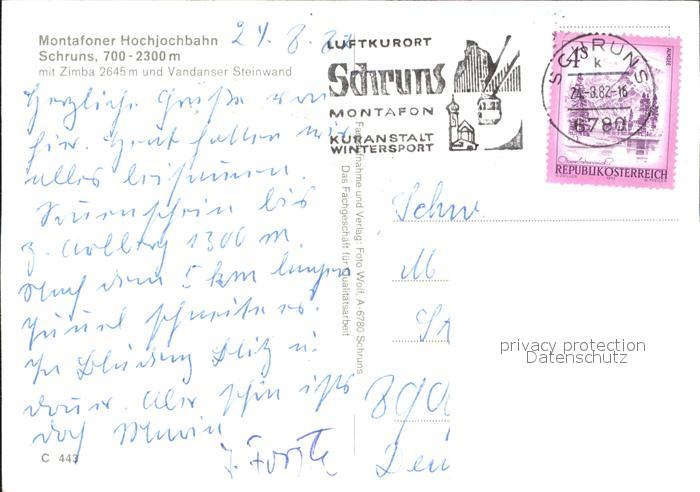 Montafoner Hochjochbahn
Schruns, 700-2300 m
mit Zimba 2645 m und Vandanser Steinwand
24. 8. 82
LUFTKURORT
Schruns
MONTAFON
KURANSTALT
WINTERSPORT
SCHRUNS
k
24.-8.82-16
6780
4 S
ALMSEE
REPUBLIK ÖSTERREICH
Herzliche Grüße von
hier. Heut hatten wir
alles beisammen.
Sonnenschein bis
z. Arlberg 1300 m.
Nach dem 5 km langen
Tunnel schneite es.
In Bludenz Blitz u.
Donner. Aber schön ists
doch
Farbaufnahme und Verlag: Foto Wolf, A-6780 Schruns
Das Fachgeschäft für Qualitätsarbeit
Schw
M
St
Deu
C 443
privacy protection
Datenschutz